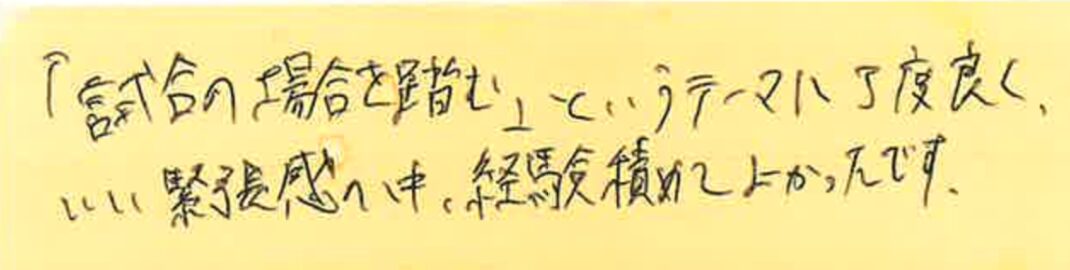 「試合の場合を踏む」というテーマに丁度良く、
いい緊張感の中、経験積めてよかったです。